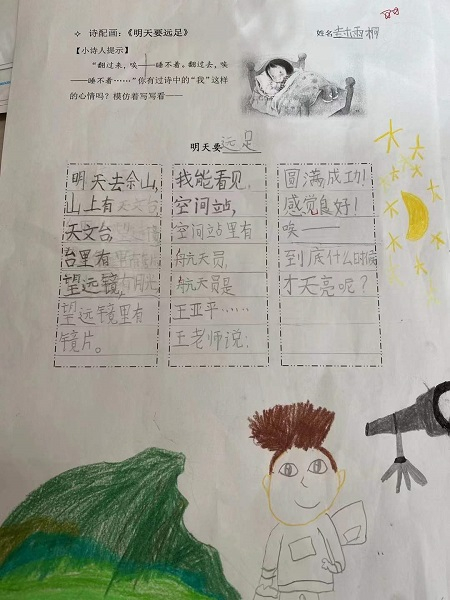 ✧ 诗配画：《明天要远足》
姓名
【小诗人提示】
“翻过来，唉——睡不着。翻过去，唉
——睡不着……”你有过诗中的“我”这样
的心情吗？模仿着写写看——
明天要远足
明天去佘山，
山上有天文台，
天文台
台里有
望远镜，
望远镜里有
镜片。
我能看见，
空间站，
空间站里有
航天员，
航天员是
王亚平……
王老师说：
圆满成功！
感觉良好！
唉——
到底什么时候
才天亮呢？